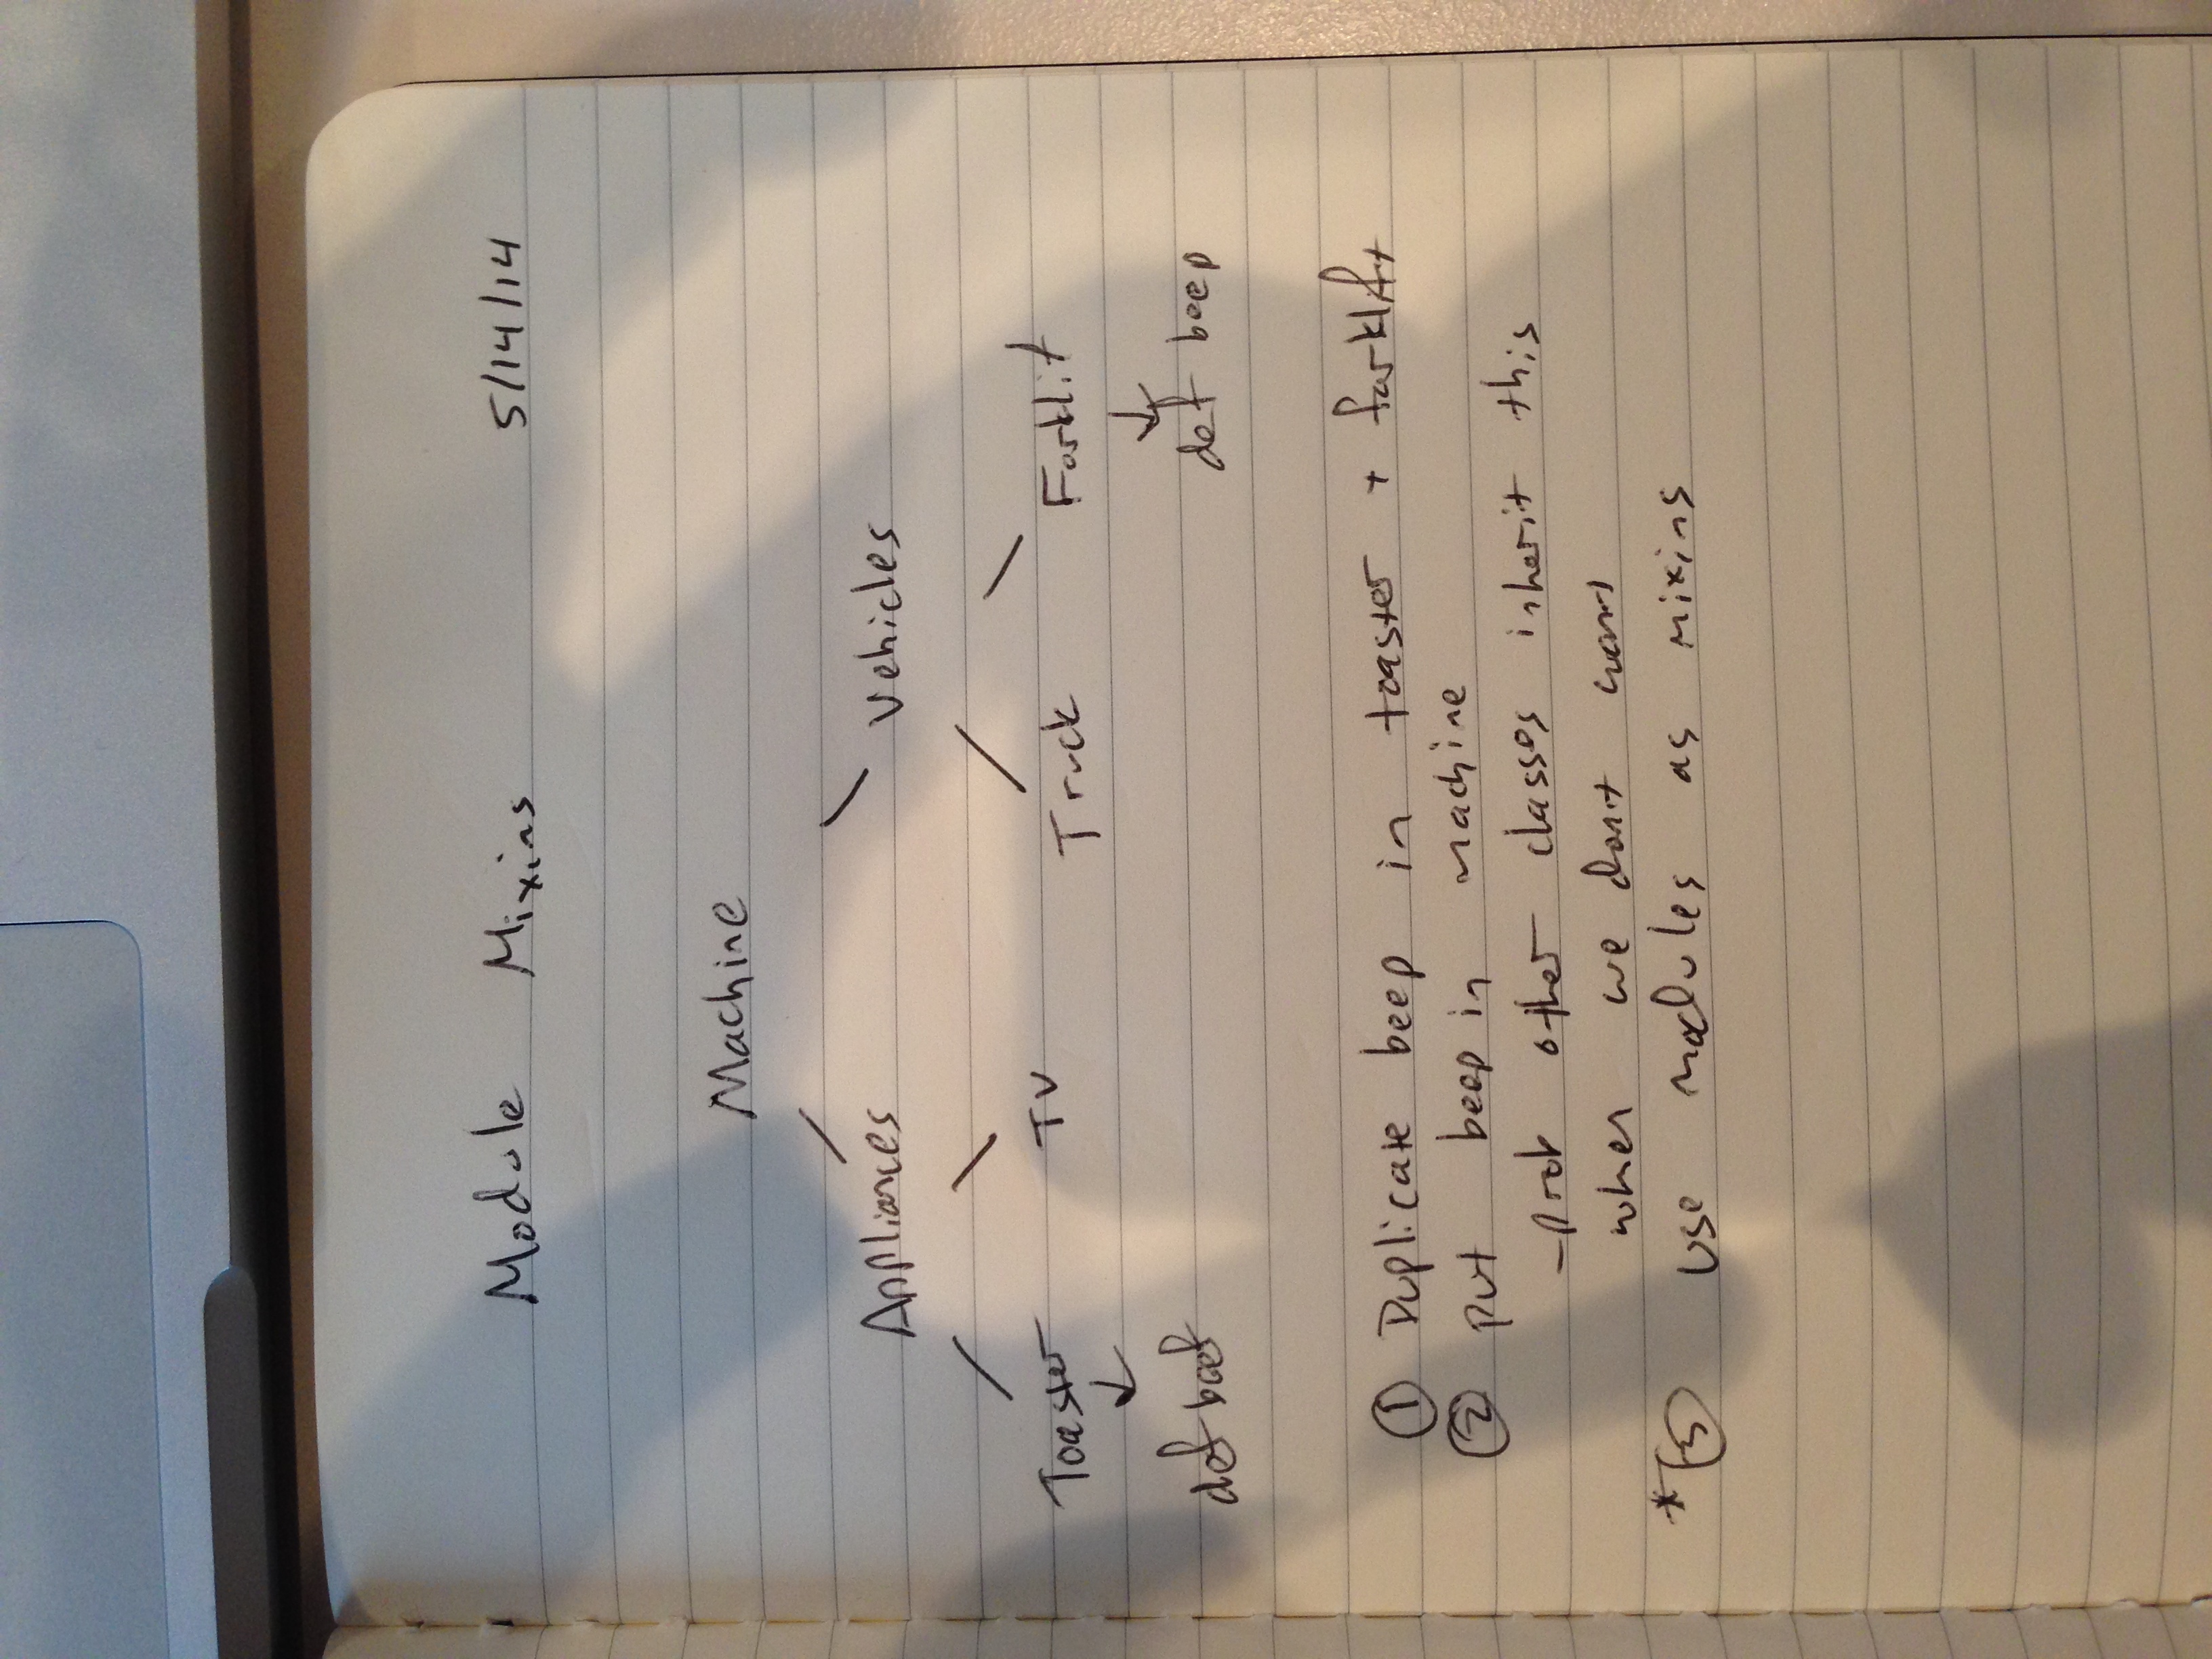 Module Mixins 5/14/14
Machine
Appliances Vehicles
Toaster TV Truck Forklit
def beef def beep
① Duplicate beep in toaster + forklift
② put beep in machine
- prob other classes inherit this
when we don't want
* ③ Use modules as mixins